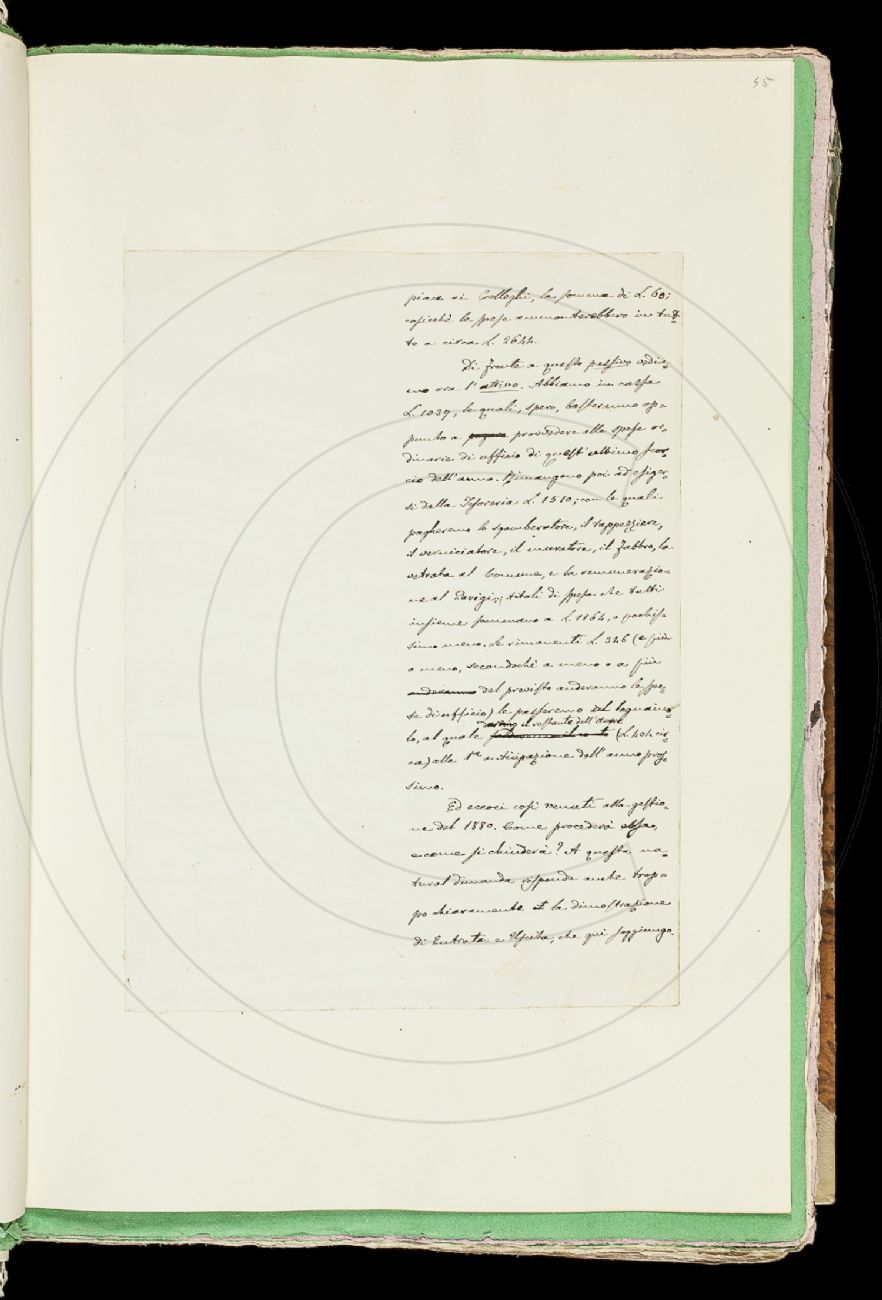 55
piace ai Colleghi, la somma di L. 60;
cosicchè le spese ammonterebbero in tut=
to a circa L. 2644.
Di fronte a questo passivo vedia=
mo ora l'attivo. Abbiamo in cassa
L. 1039, le quali, spero, basteranno ap=
punto a pagare provvedere alle spese or=
dinarie di ufficio di quest'ultimo scor=
cio dell'anno. Rimangono poi ad esiger=
si dalla Tesoreria L. 1510; con le quali
pagheremo lo sgomberatore, il tappezziere,
il verniciatore, il muratore, il fabbro, la
vetrata al Comune, e la remunerazio=
ne al Parigi; titoli di spesa che tutti
insieme sommano a L. 1164, o pochis=
simo meno. Le rimanenti L. 346 (e più
o meno, secondochè a meno o a più
anderanno del previsto anderanno le spe=
se di ufficio) le passeremo al legnaiuo=
daremo il restante dell'avere
lo, al quale (L. 404 cir=
ca) alla 1ª anticipazione dell'anno pros=
simo.
Ed eccoci così venuti alla gestio=
ne del 1880. Come procederà essa,
e come si chiuderà? A questa na=
tural dimanda risponde anche trop=
po chiaramente la dimostrazione
di Entrata e Uscita, che qui soggiungo.